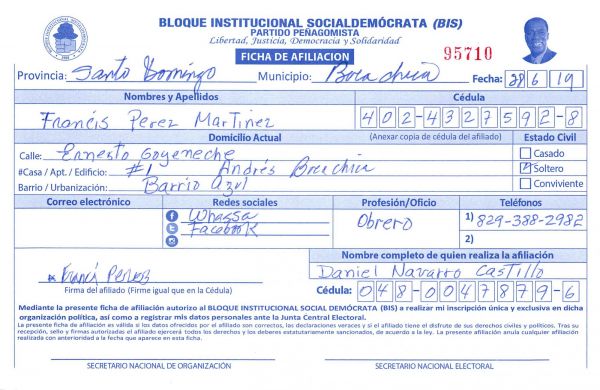 BLOQUE INSTITUCIONAL SOCIALDEMÓCRATA (BIS)
PARTIDO PEÑAGOMISTA
Libertad, Justicia, Democracia y Solidaridad
FICHA DE AFILIACION
95710
Provincia: Santo Domingo Municipio: Boca chica Fecha: 28 6 19
Nombres y Apellidos Cédula
Francis Perez Martinez 402-4327592-8
Domicilio Actual (Anexar copia de cédula del afiliado) Estado Civil
Calle: Ernesto Goyeneche Casado
#Casa / Apt. / Edificio: #1 Andrés Boca chica Soltero
Barrio / Urbanización: Barrio Azul Conviviente
Correo electrónico Redes sociales Profesión/Oficio Teléfonos
Whassa Obrero 1) 829-388-2982
Facebook 2)
Nombre completo de quien realiza la afiliación
Francis Perez Daniel Navarro Castillo
Firma del afiliado (Firme igual que en la Cédula) Cédula: 048-0047879-6
Mediante la presente ficha de afiliación autorizo al BLOQUE INSTITUCIONAL SOCIAL DEMÓCRATA (BIS) a realizar mi inscripción única y exclusiva en dicha
organización política, así como a registrar mis datos personales ante la Junta Central Electoral.
La presente ficha de afiliación es válida si los datos ofrecidos por el afiliado son correctos, las declaraciones veraces y si el afiliado tiene el disfrute de sus derechos civiles y políticos. Tras su
recepción, sello y firmas autorizadas el afiliado ejercerá todos los derechos y los deberes estatutariamente sancionados, de acuerdo a la ley. La presente afiliación anula cualquier afiliación
realizada con anterioridad a la fecha que aparece en esta ficha.
SECRETARIO NACIONAL DE ORGANIZACIÓN SECRETARIO NACIONAL ELECTORAL